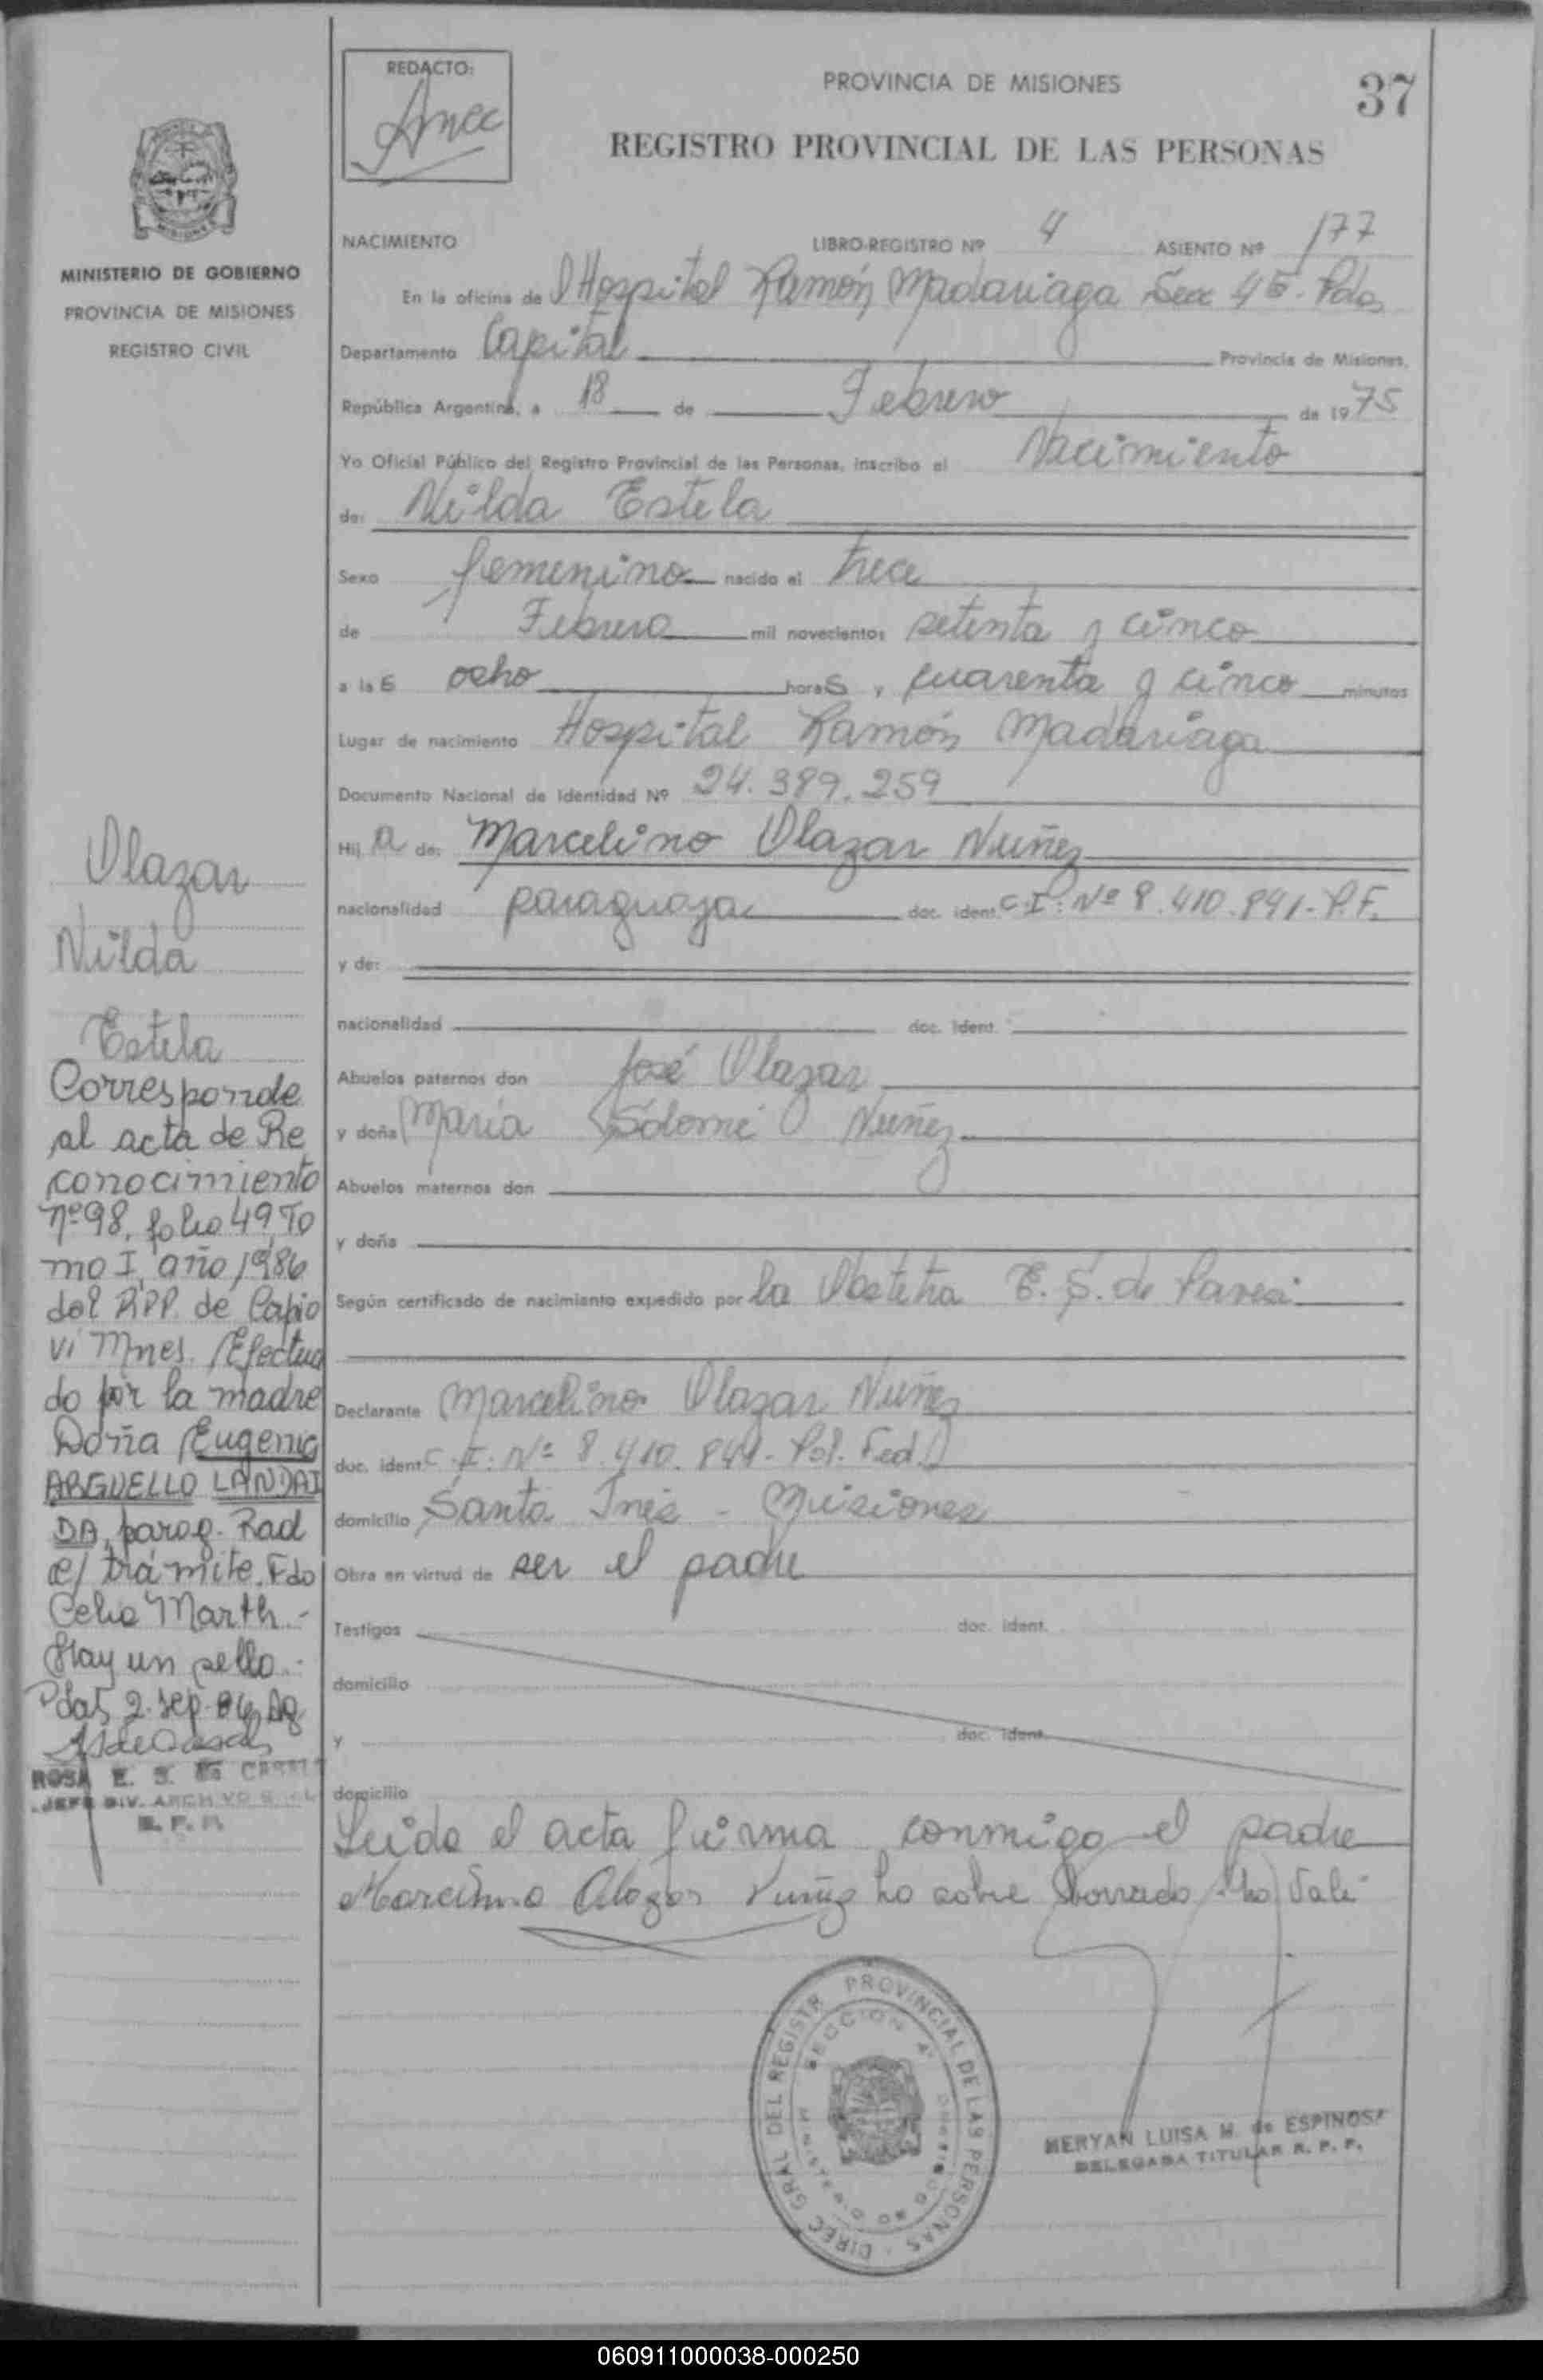 REDACTO:
PROVINCIA DE MISIONES
37
REGISTRO PROVINCIAL DE LAS PERSONAS
MINISTERIO DE GOBIERNO
PROVINCIA DE MISIONES
REGISTRO CIVIL
NACIMIENTO LIBRO-REGISTRO Nº 4 ASIENTO Nº 177
En la oficina de Hospital Ramón Madariaga Secc 4ª. Pdas
Departamento Capital Provincia de Misiones,
República Argentina, a 18 de Febrero de 1975
Yo Oficial Público del Registro Provincial de las Personas, inscribo el Nacimiento
de: Nilda Estela
Sexo femenino nacido el trece
de Febrero mil novecientos setenta y cinco
a las ocho horas, cuarenta y cinco minutos
Lugar de nacimiento Hospital Ramón Madariaga
Documento Nacional de Identidad Nº 24.389.259
Hija de: Marcelino Olazar Nuñez
nacionalidad paraguaya doc. ident. C.I: Nº 8.410.841-P.F.
y de:
nacionalidad doc. ident.
Abuelos paternos don José Olazar
y doña Maria Solomé Nuñez
Abuelos maternos don
y doña
Según certificado de nacimiento expedido por la Obstetra E. S. de
Declarante Marcelino Olazar Nuñez
doc. ident C.I: Nº 8.410.841- Pol. Fed.
domicilio Santa Inés - Misiones
Obra en virtud de ser el padre
Testigos doc. ident.
domicilio
y doc. ident.
domicilio
Leida el acta firma conmigo el padre
Marcelino Olazar Nuñez ho sobre borrado ho Vale
Olazar
Nilda
Estela
Corresponde
al acta de Re
conocimiento
nº 98, folio 49, To
mo I, año 1986
del RPP. de Capio
vi Mnes. Efectua
do por la madre
Doña Eugenia
ARGUELLO LANDAI
DA, parag. Rad
e/ trámite. Fdo
Celia Marth.-
Hay un sello.-
Pdas 2. sep. 86
ROSA E. S. de CASALS
JEFE DIV. ARCHIVO
R. P. P.
DIREC. GRAL. DEL REGISTR. PROVINCIAL DE LAS PERSONAS
SECCION 4ª
MERYAN LUISA M. de ESPINOSA
DELEGADA TITULAR R. P. P.
060911000038-000250